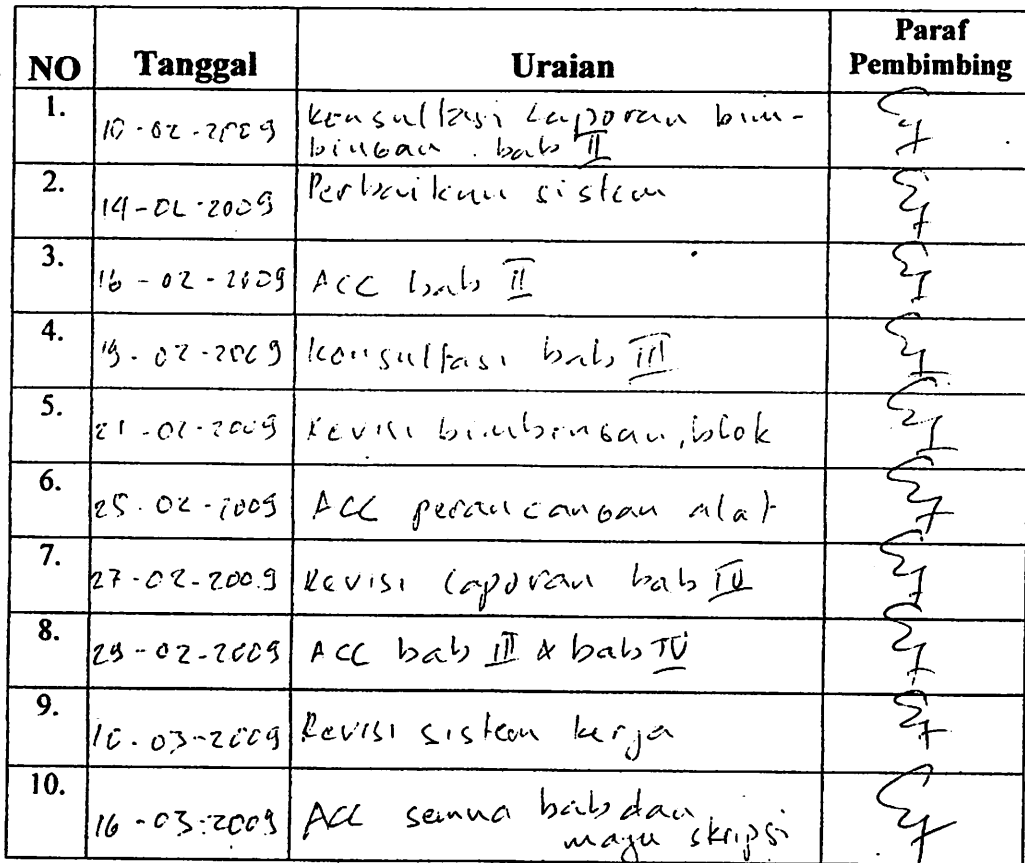 NO Tanggal Uraian Paraf Pembimbing
1. 10-02-2009 Konsultasi Laporan bim-
bingan bab II
2. 14-02-2009 Perbaikan sistem
3. 16-02-2009 ACC bab II
4. 19-02-2009 Konsultasi bab III
5. 21-02-2009 Revisi bimbingan, blok
6. 25-02-2009 ACC perancangan alat
7. 27-02-2009 Revisi Laporan bab IV
8. 29-02-2009 ACC bab III & bab IV
9. 10-03-2009 Revisi sistem kerja
10. 16-03-2009 ACC semua bab dan
maju skripsi